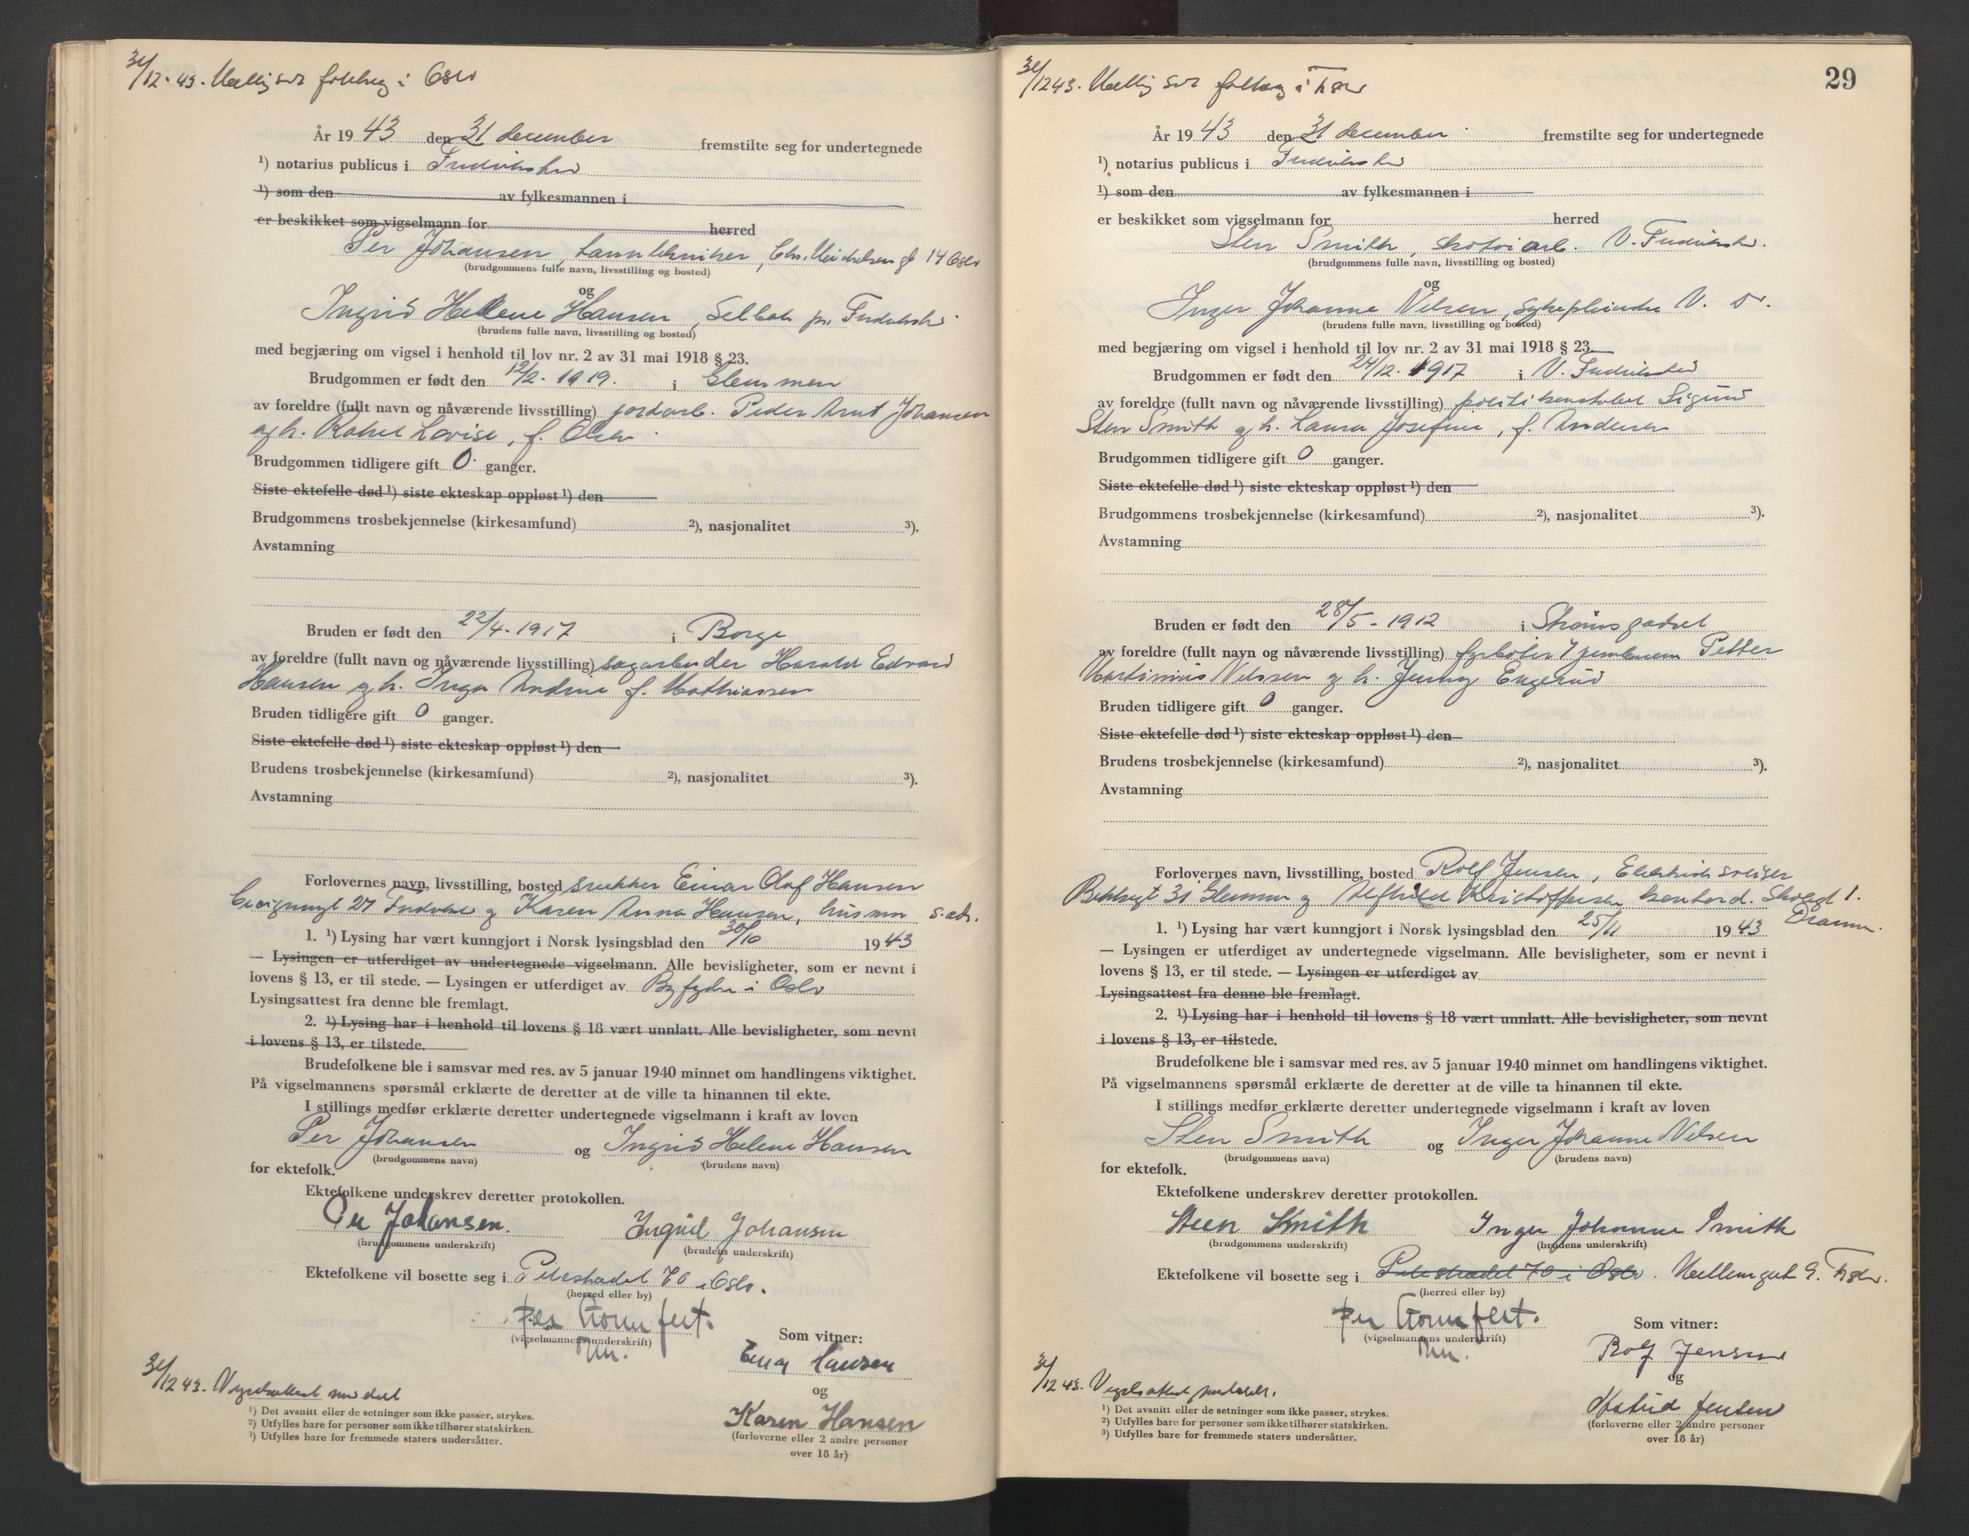 31/12.43. i Oslo
År 1943 den 31 december fremstilte seg for undertegnede
¹) notarius publicus i Fredrikstad
¹) som den av fylkesmannen i
er beskikket som vigselmann for herred
Per Johansen, tanntekniker, Chr. Michelsens gt 14 Oslo
(brudgommens fulle navn, livsstilling og bosted)
og
Ingrid Helene Hansen, Selbak pr. Fredrikstad
(brudens fulle navn, livsstilling og bosted)
med begjæring om vigsel i henhold til lov nr. 2 av 31 mai 1918 § 23.
Brudgommen er født den 12/2. 1919. i Glemmen
av foreldre (fullt navn og nåværende livsstilling) jordarb. Peder Arnt Johansen
og h. Rakel Lovise, f. Olsen
Brudgommen tidligere gift 0 ganger.
Siste ektefelle død ¹) siste ekteskap oppløst ¹) den
Brudgommens trosbekjennelse (kirkesamfund) ²), nasjonalitet ³).
Avstamning
Bruden er født den 22/4-1917 i Borge
av foreldre (fullt navn og nåværende livsstilling) sagarbeider Harald Edvard
Hansen og h. Inga Andrine f. Mathiassen
Bruden tidligere gift 0 ganger.
Siste ektefelle død ¹) siste ekteskap oppløst ¹) den
Brudens trosbekjennelse (kirkesamfund) ²), nasjonalitet ³).
Avstamning
Forlovernes navn, livsstilling, bosted snekker Einar Olaf Hansen
27 og Karen Anna Hansen, s. adr.
1. ¹) Lysing har vært kunngjort i Norsk lysingsblad den 30/10 1943
— Lysingen er utferdiget av undertegnede vigselmann. Alle bevisligheter, som er nevnt i
lovens § 13, er til stede. — Lysingen er utferdiget av Byfogden i Oslo
Lysingsattest fra denne ble fremlagt.
2. ¹) Lysing har i henhold til lovens § 18 vært unnlatt. Alle bevisligheter, som nevnt
i lovens § 13, er tilstede.
Brudefolkene ble i samsvar med res. av 5 januar 1940 minnet om handlingens viktighet.
På vigselmannens spørsmål erklærte de deretter at de ville ta hinannen til ekte.
I stillings medfør erklærte deretter undertegnede vigselmann i kraft av loven
Per Johansen og Ingrid Helene Hansen
(brudgommens navn) (brudens navn)
for ektefolk.
Ektefolkene underskrev deretter protokollen.
Per Johansen. Ingrid Johansen
(brudgommens underskrift) (brudens underskrift)
Ektefolkene vil bosette seg i Pilestredet 70 i Oslo.
(herred eller by)
(vigselmannens underskrift)
Som vitner:
Einar Hansen
og
Karen Hansen
(forloverne eller 2 andre personer
over 18 år)
31/12 43. Vigselsattest
¹) Det avsnitt eller de setninger som ikke passer, strykes.
²) Utfylles bare for personer som ikke tilhører statskirken.
³) Utfylles bare for fremmede staters undersåtter.
29
31/12 43.
År 1943 den 31 december fremstilte seg for undertegnede
¹) notarius publicus i Fredrikstad
¹) som den av fylkesmannen i
er beskikket som vigselmann for herred
Sten Smith, skotøiarb. V. Fredrikstad.
(brudgommens fulle navn, livsstilling og bosted)
og
Inger Johanne Nilsen, sykepleierske V. Do.
(brudens fulle navn, livsstilling og bosted)
med begjæring om vigsel i henhold til lov nr. 2 av 31 mai 1918 § 23
Brudgommen er født den 24/12. 1917 i V. Fredrikstad
av foreldre (fullt navn og nåværende livsstilling) politikonstabel Sigurd
Sten Smith og h. Laura Josefine, f. Andersen
Brudgommen tidligere gift 0 ganger.
Siste ektefelle død ¹) siste ekteskap oppløst ¹) den
Brudgommens trosbekjennelse (kirkesamfund) ²), nasjonalitet ³).
Avstamning
Bruden er født den 28/5-1912 i Strømsgodset
av foreldre (fullt navn og nåværende livsstilling) fyrbøter Petter
Martinius Nilsen og h. Jenny Engerud
Bruden tidligere gift 0 ganger.
Siste ektefelle død ¹) siste ekteskap oppløst ¹) den
Brudens trosbekjennelse (kirkesamfund) ²), nasjonalitet ³).
Avstamning
Forlovernes navn, livsstilling, bosted Rolf Jensen,
31 Glemmen og Alfhild Kristoffersen 1.
Dramm.
1. ¹) Lysing har vært kunngjort i Norsk lysingsblad den 25/11 1943
— Lysingen er utferdiget av undertegnede vigselmann. Alle bevisligheter, som er nevnt i
lovens § 13, er til stede. — Lysingen er utferdiget av
Lysingsattest fra denne ble fremlagt.
2. ¹) Lysing har i henhold til lovens § 18 vært unnlatt. Alle bevisligheter, som nevnt
i lovens § 13, er tilstede.
Brudefolkene ble i samsvar med res. av 5 januar 1940 minnet om handlingens viktighet.
På vigselmannens spørsmål erklærte de deretter at de ville ta hinannen til ekte.
I stillings medfør erklærte deretter undertegnede vigselmann i kraft av loven
Sten Smith og Inger Johanne Nilsen
(brudgommens navn) (brudens navn)
for ektefolk.
Ektefolkene underskrev deretter protokollen.
Steen Smith Inger Johanne Smith
(brudgommens underskrift) (brudens underskrift)
Ektefolkene vil bosette seg i Pilestredet 70 i Oslo. 9.
(herred eller by)
(vigselmannens underskrift)
Som vitner:
Rolf Jensen
og
Astrid Jensen
(forloverne eller 2 andre personer
over 18 år)
31/12 43. Vigselsattest
¹) Det avsnitt eller de setninger som ikke passer, strykes.
²) Utfylles bare for personer som ikke tilhører statskirken.
³) Utfylles bare for fremmede staters undersåtter.